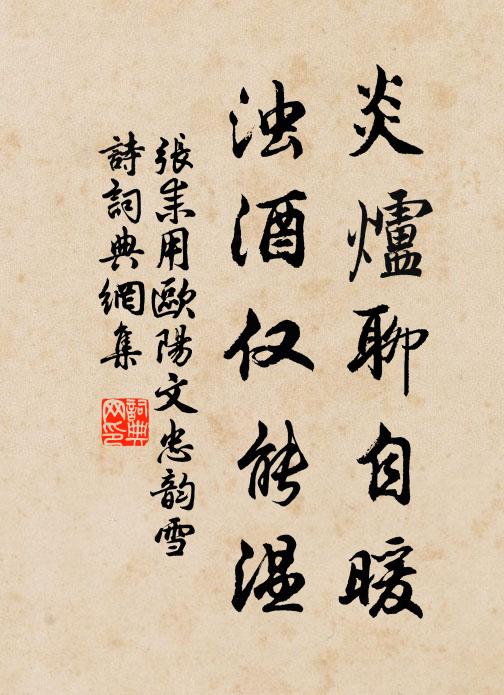 炎爐聊自暖
浊酒仅能温
張耒用歐陽文忠韵雪
詩詞典網集
詞典
网印